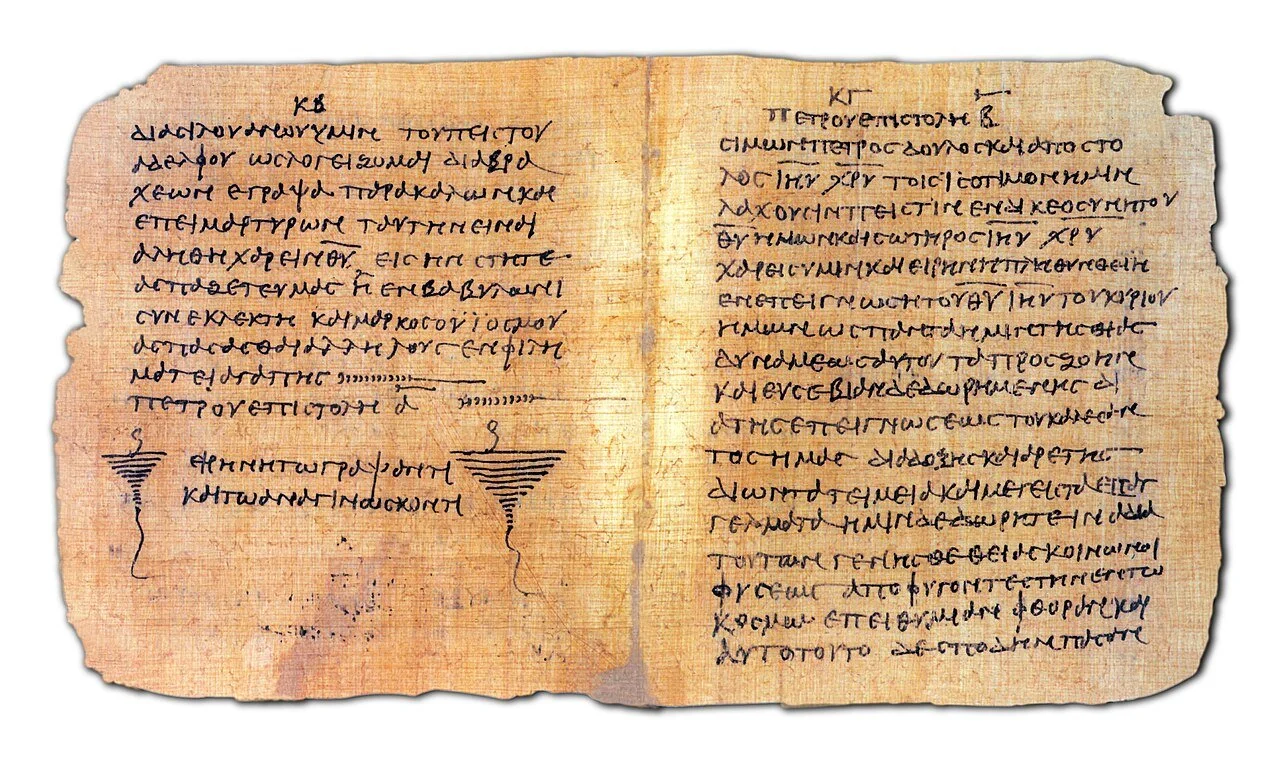 ΚΒ
διασιλουανωυυμιν τουπειστου
αδελφου ωσλογειζυμαι διαβρα
χεων εγραψα παρακαλωνκαι
επειμαρτυρων ταυτηνειναι
αληθηχαρεινθ̅υ̅ εισηνστητε
ασπαζετευμας η ενβαβυλωνι
συνεκλεκτη καιμαρκοσουιοσμου
ασπασασθαιαλληλους ενφιλη
ματειαγαπης
πετρουεπιστολη α̅
ειρηνητωγραψαντι
καιτωαναγινωσκοντι
ΚΓ
πετρουεπιστολη β
σιμωνπετροσδουλοσκαιαποστο
λος ι̅η̅υ̅ χ̅ρ̅υ̅ τοισισοτιμονημιν
λαχουσινπειστιν ενδικεοσυνητου
θ̅υ̅ημωνκαισωτηρος ι̅η̅υ̅ χ̅ρ̅υ̅
χαρεισυμινκαιειρηνηπληθυνθειη
ενεπειγνωσητουθ̅υ̅ ι̅η̅υ̅ τουκυριου
ημωνωσπανταημιντησθειας
δυναμεωσαυτου ταπροσζοην
καιευσεβιανδεδωρημενησ δι
ατησεπειγνωσεωσ τουκαλεσαν
τοσημας διαδοξησκαιαρετης
διωντατειμειακαιμεγεισταεπαγ
γελματα ημινδεδωρητειναδια
τουτωνγενησθεθειασκοινωνοι
φυσεως αποφυγοντεστηνεντω
κοσμω επειθυμειαν φθορανκαι
αυτοτουτο δεσποδηνπασαν